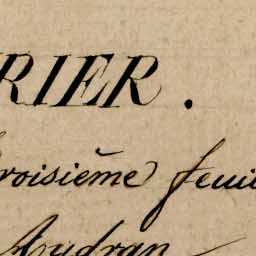 RIER.
troisième feuil
Audran